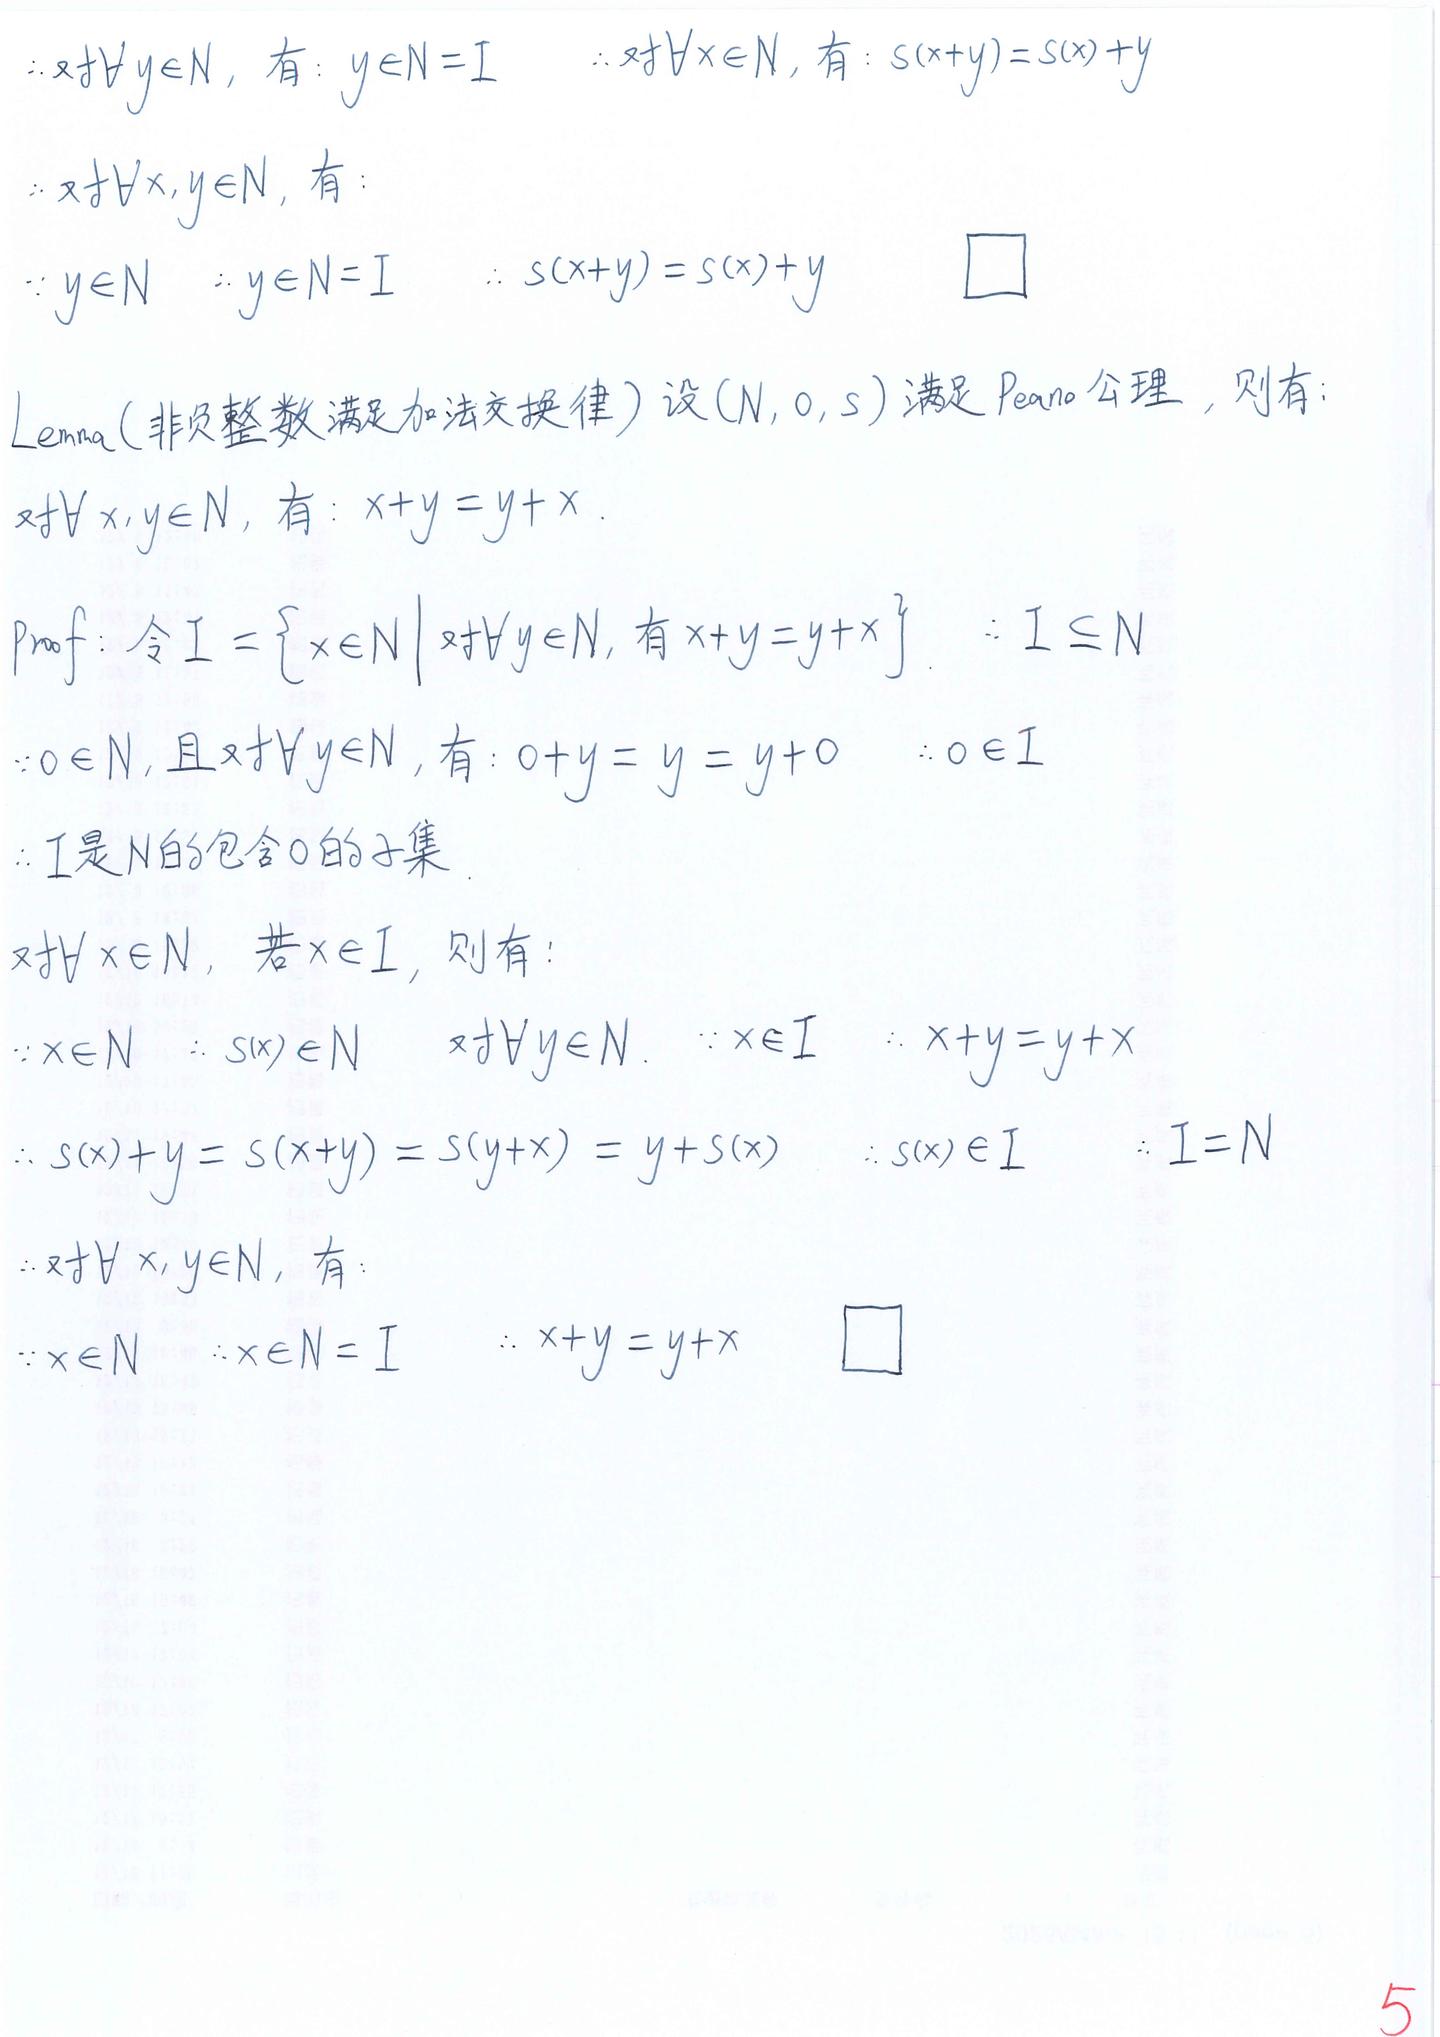 ∴对∀y∈N, 有: y∈N=I ∴对∀x∈N, 有: s(x+y)=s(x)+y
∴对∀x,y∈N, 有:
∵y∈N ∴y∈N=I ∴s(x+y)=s(x)+y □
Lemma(非负整数满足加法交换律) 设(N,0,s)满足Peano公理, 则有:
对∀x,y∈N, 有: x+y=y+x.
Proof: 令I={x∈N|对∀y∈N, 有x+y=y+x}. ∴I⊆N
∵0∈N, 且对∀y∈N, 有: 0+y=y=y+0 ∴0∈I
∴I是N的包含0的子集.
对∀x∈N, 若x∈I, 则有:
∵x∈N ∴s(x)∈N 对∀y∈N. ∵x∈I ∴x+y=y+x
∴s(x)+y=s(x+y)=s(y+x)=y+s(x) ∴s(x)∈I ∴I=N
∴对∀x,y∈N, 有:
∵x∈N ∴x∈N=I ∴x+y=y+x □
5